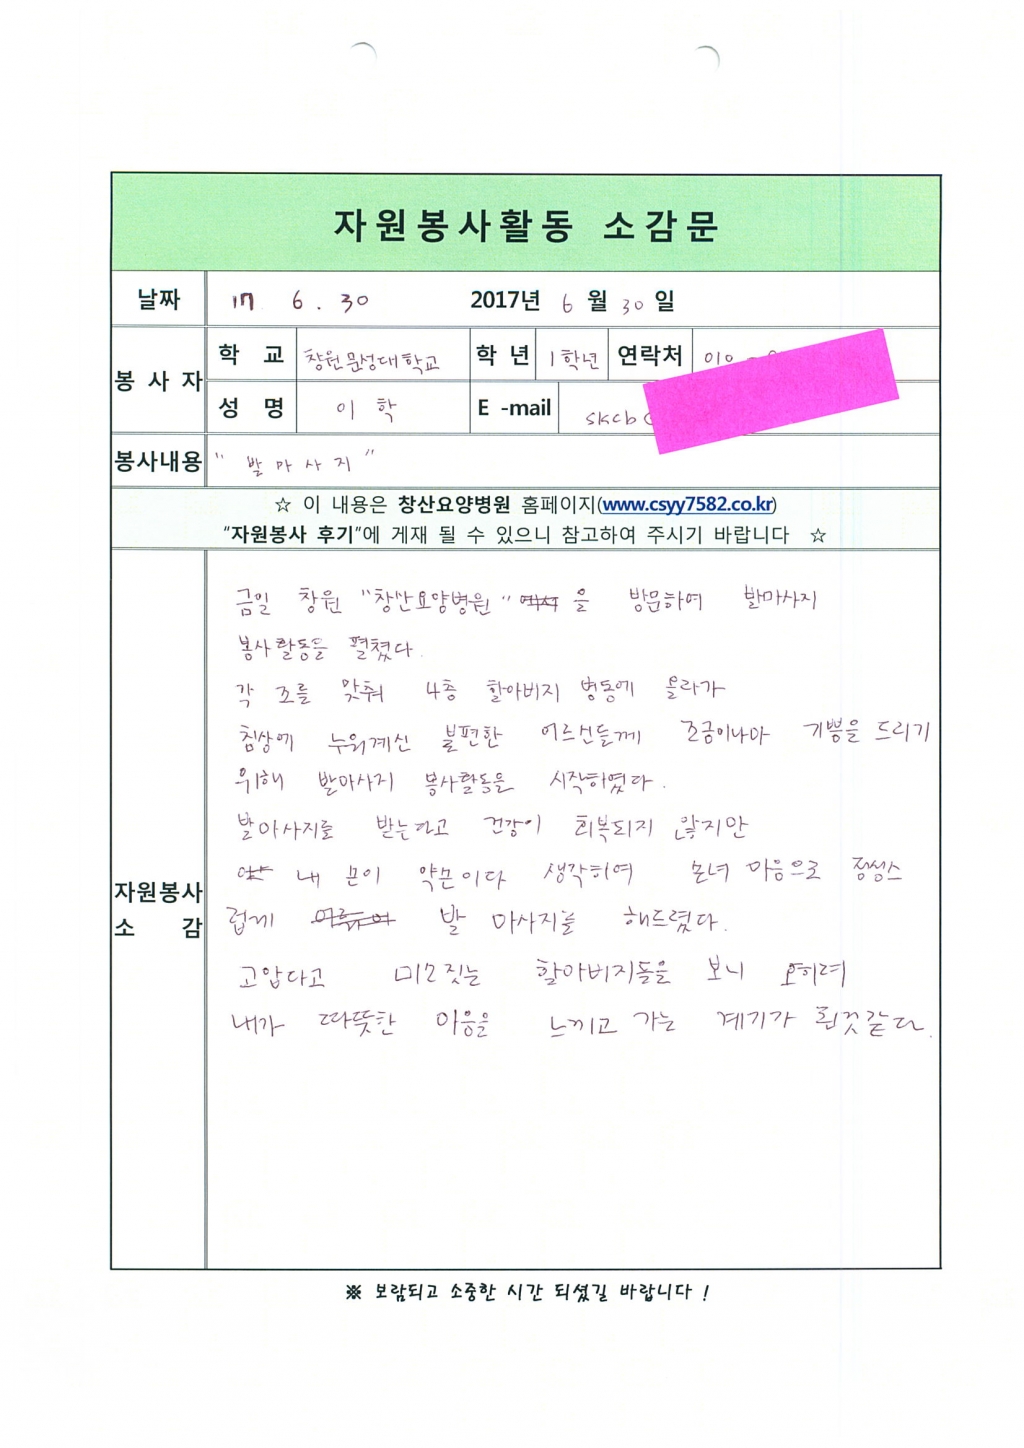 자원봉사활동 소감문
날짜 17 6 . 30 2017년 6 월 30 일
봉사자 학 교 창원문성대학교 학 년 1학년 연락처 010 -
성 명 이 학 E -mail skcb
봉사내용 " 발 마 사 지 "
☆ 이 내용은 창산요양병원 홈페이지(www.csyy7582.co.kr)
"자원봉사 후기"에 게재 될 수 있으니 참고하여 주시기 바랍니다 ☆
자원봉사
소 감
금일 창원 "창산요양병원" 을 방문하여 발마사지
봉사활동을 펼쳤다.
각 조를 맞춰 4층 할아버지 병동에 올라가
침상에 누워계신 불편한 어르신들께 조금이나마 기쁨을 드리기
위해 발마사지 봉사활동을 시작하였다.
발마사지를 받는다고 건강이 회복되지 않지만
내 손이 약손이다 생각하여 손녀 마음으로 정성스
럽게 발 마사지를 해드렸다.
고맙다고 미소짓는 할아버지들을 보니 오히려
내가 따뜻한 마음을 느끼고 가는 계기가 된것같다.
※ 보람되고 소중한 시간 되셨길 바랍니다 !